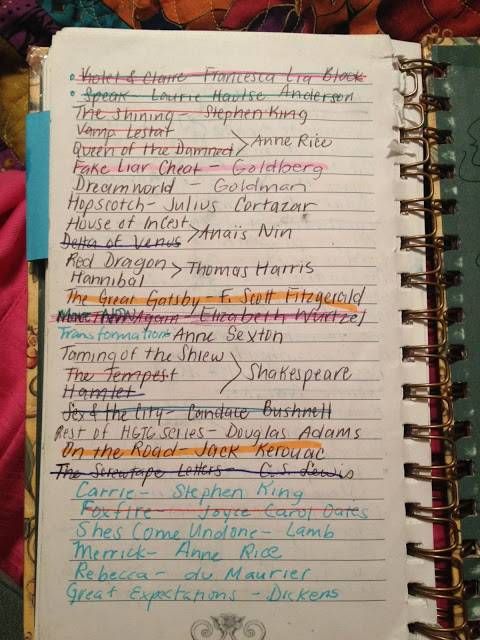 Violet & Claire Francesca Lia Block
Speak - Laurie Haulse Anderson
The Shining - Stephen King
Vamp Lestat
Queen of the Damned > Anne Rice
Fake Liar Cheat - Goldberg
Dreamworld - Goldman
Hopscotch - Julius Cortazar
House of Incest
Delta of Venus > Anaïs Nin
Red Dragon
Hannibal > Thomas Harris
The Great Gatsby - F. Scott Fitzgerald
More Now Again - Elizabeth Wurtzel
Transformation - Anne Sexton
Taming of the Shrew
The Tempest > Shakespeare
Hamlet
Sex & the City - Candace Bushnell
Rest of HGTG series - Douglas Adams
On the Road - Jack Kerouac
The Screwtape Letters - C.S. Lewis
Carrie - Stephen King
Foxfire - Joyce Carol Oates
Shes Come Undone - Lamb
Merrick - Anne Rice
Rebecca - du Maurier
Great Expectations - Dickens